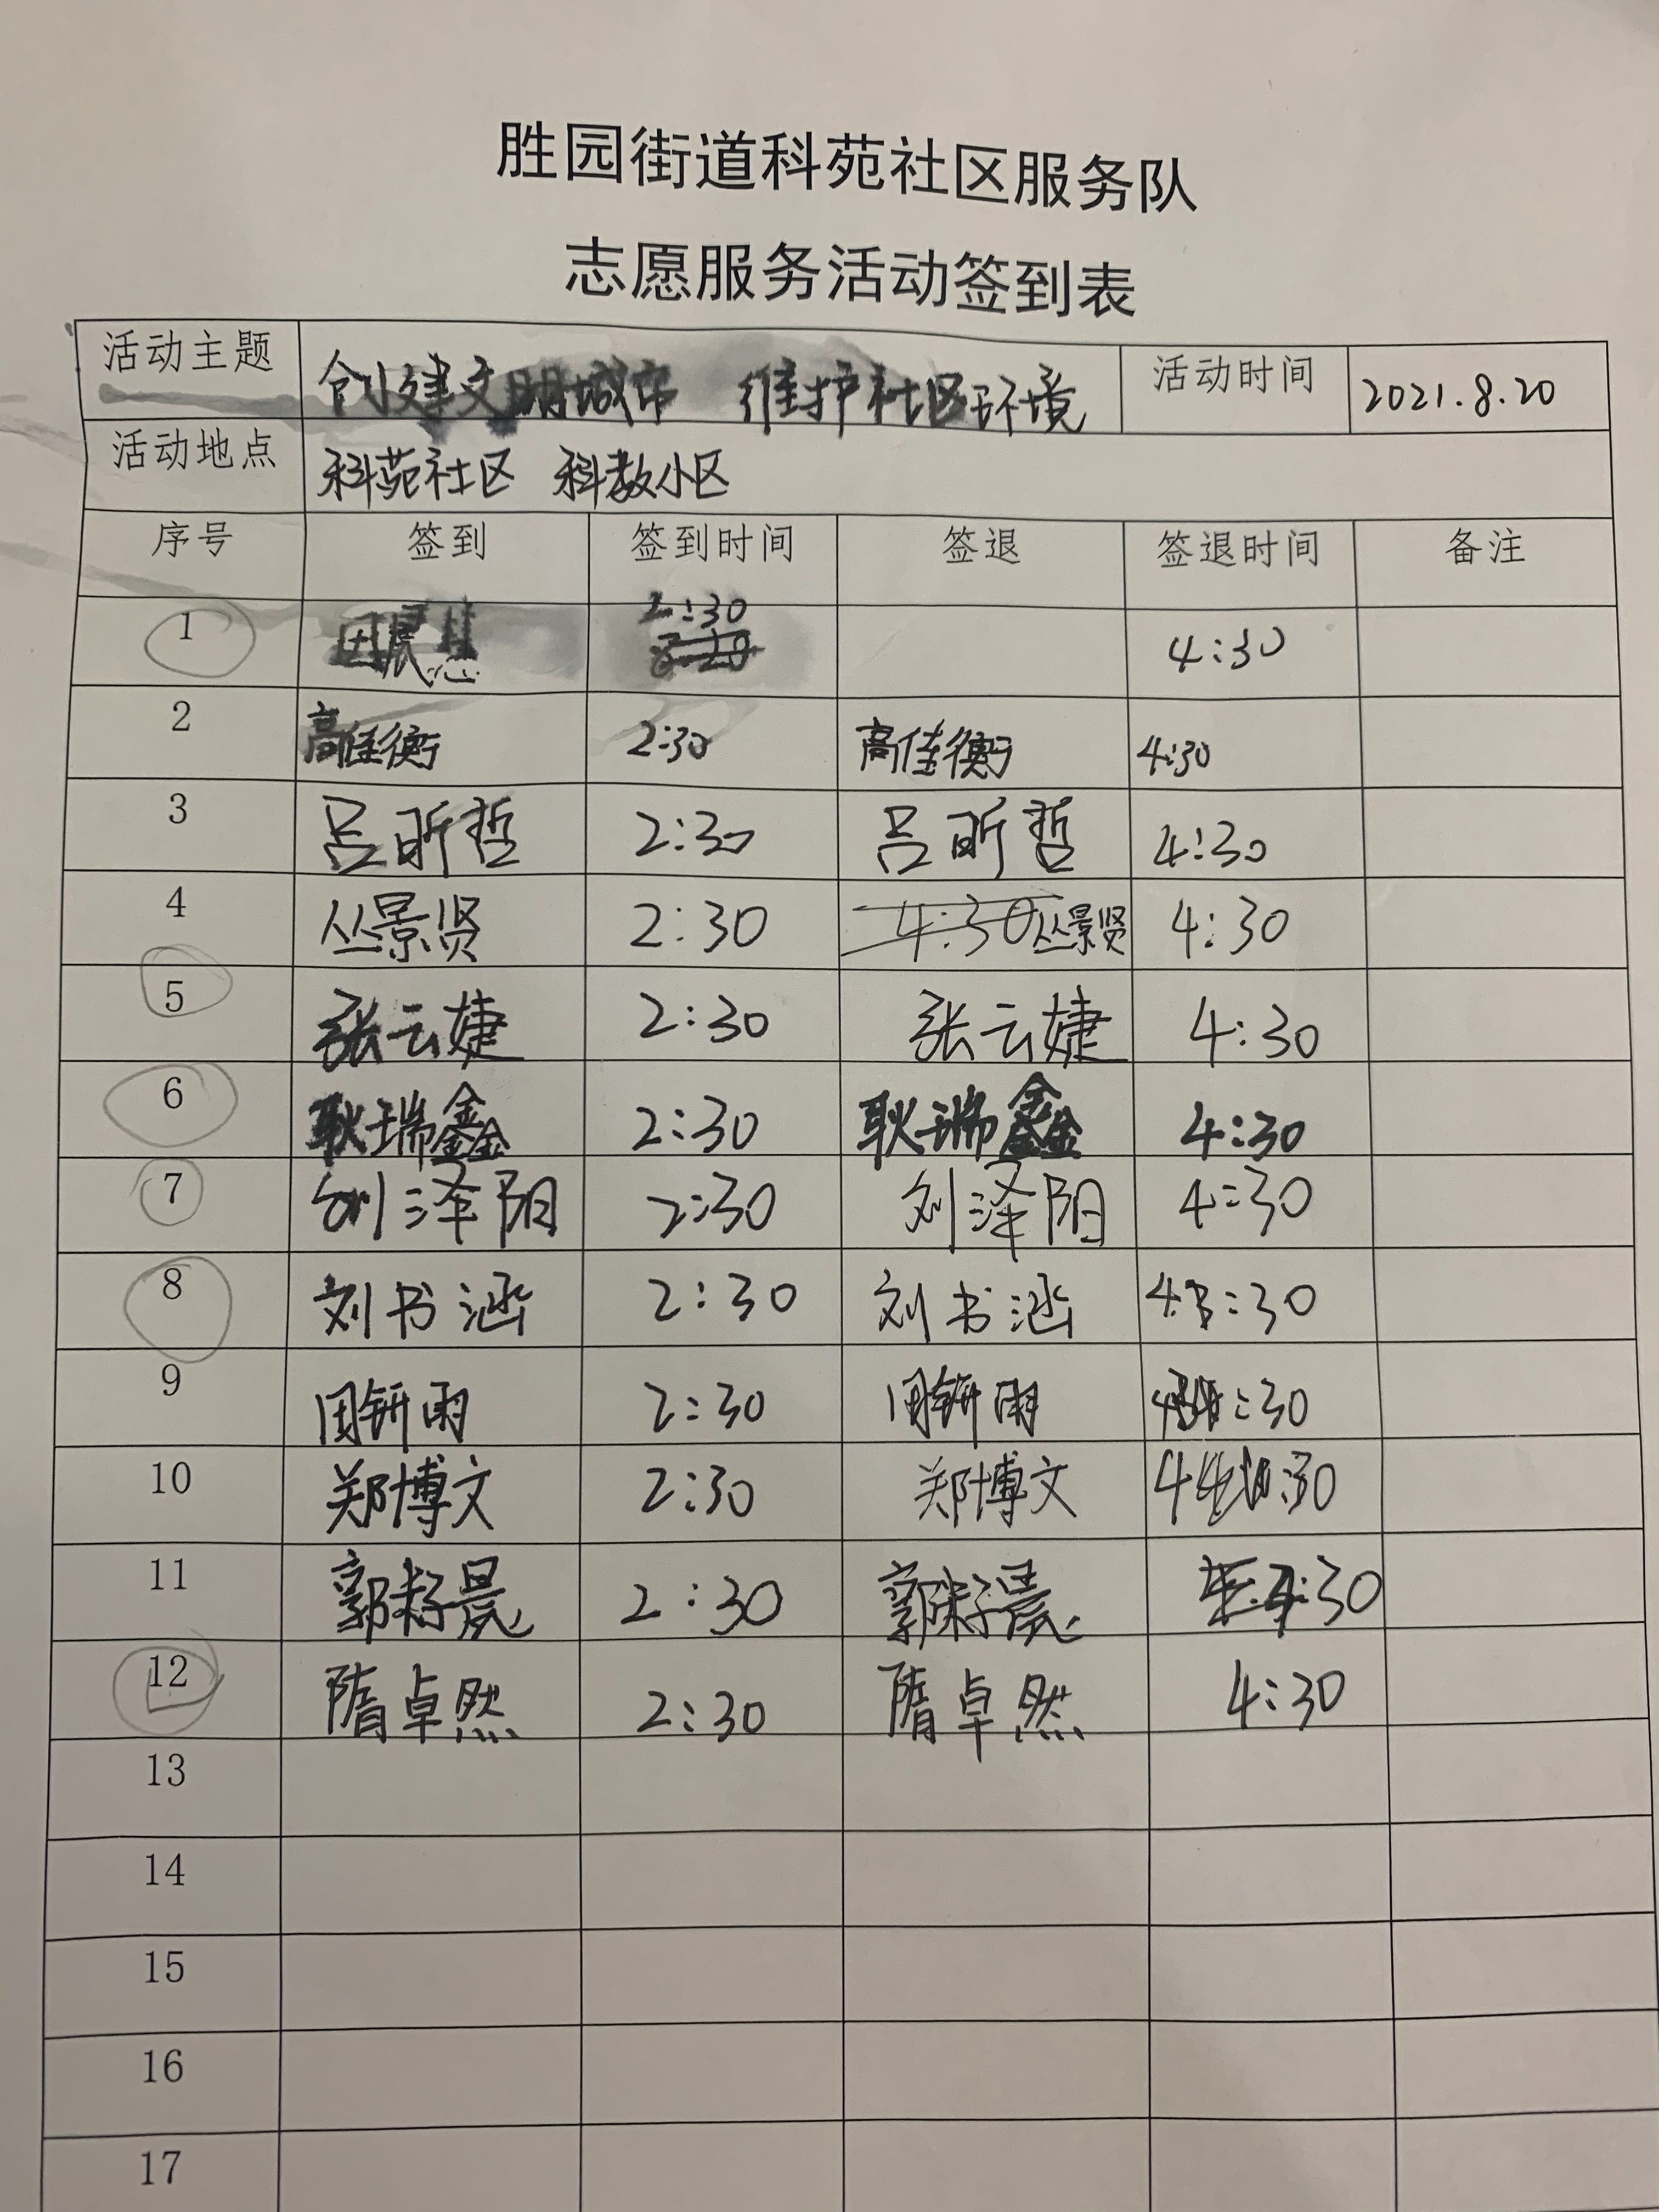 胜园街道科苑社区服务队
志愿服务活动签到表
活动主题 创建文明城市 维护社区环境 活动时间 2021.8.20
活动地点 科苑社区 科教小区
序号 签到 签到时间 签退 签退时间 备注
1 2:30 4:30
2 高佳衡 2:30 高佳衡 4:30
3 吕昕哲 2:30 吕昕哲 4:30
4 丛景贤 2:30 4:30 丛景贤 4:30
5 张云婕 2:30 张云婕 4:30
6 耿瑞鑫 2:30 耿瑞鑫 4:30
7 刘泽阳 2:30 刘泽阳 4:30
8 刘书涵 2:30 刘书涵 4:30
9 周钘雨 2:30 周钘雨 4:30
10 郑博文 2:30 郑博文 4:30
11 郭籽晨 2:30 郭籽晨 4:30
12 隋卓然 2:30 隋卓然 4:30
13
14
15
16
17